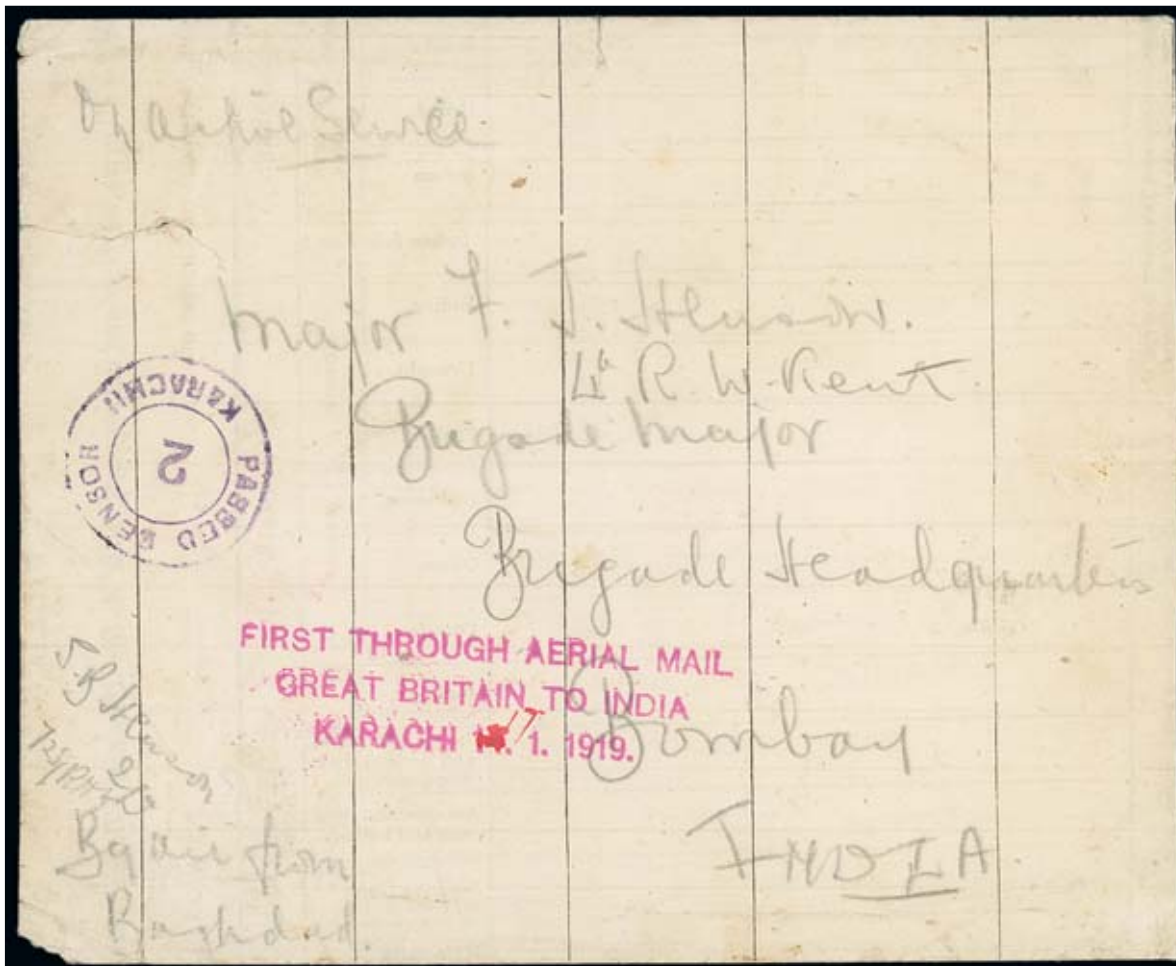 On Active Service
Major F. J. Henson.
R. W. Kent.
Brigade Major
Brigade Headquarters
Bombay
INDIA
PASSED CENSOR KARACHI
2
FIRST THROUGH AERIAL MAIL
GREAT BRITAIN TO INDIA
KARACHI 17. 1. 1919.
Henson
By air from
Baghdad.